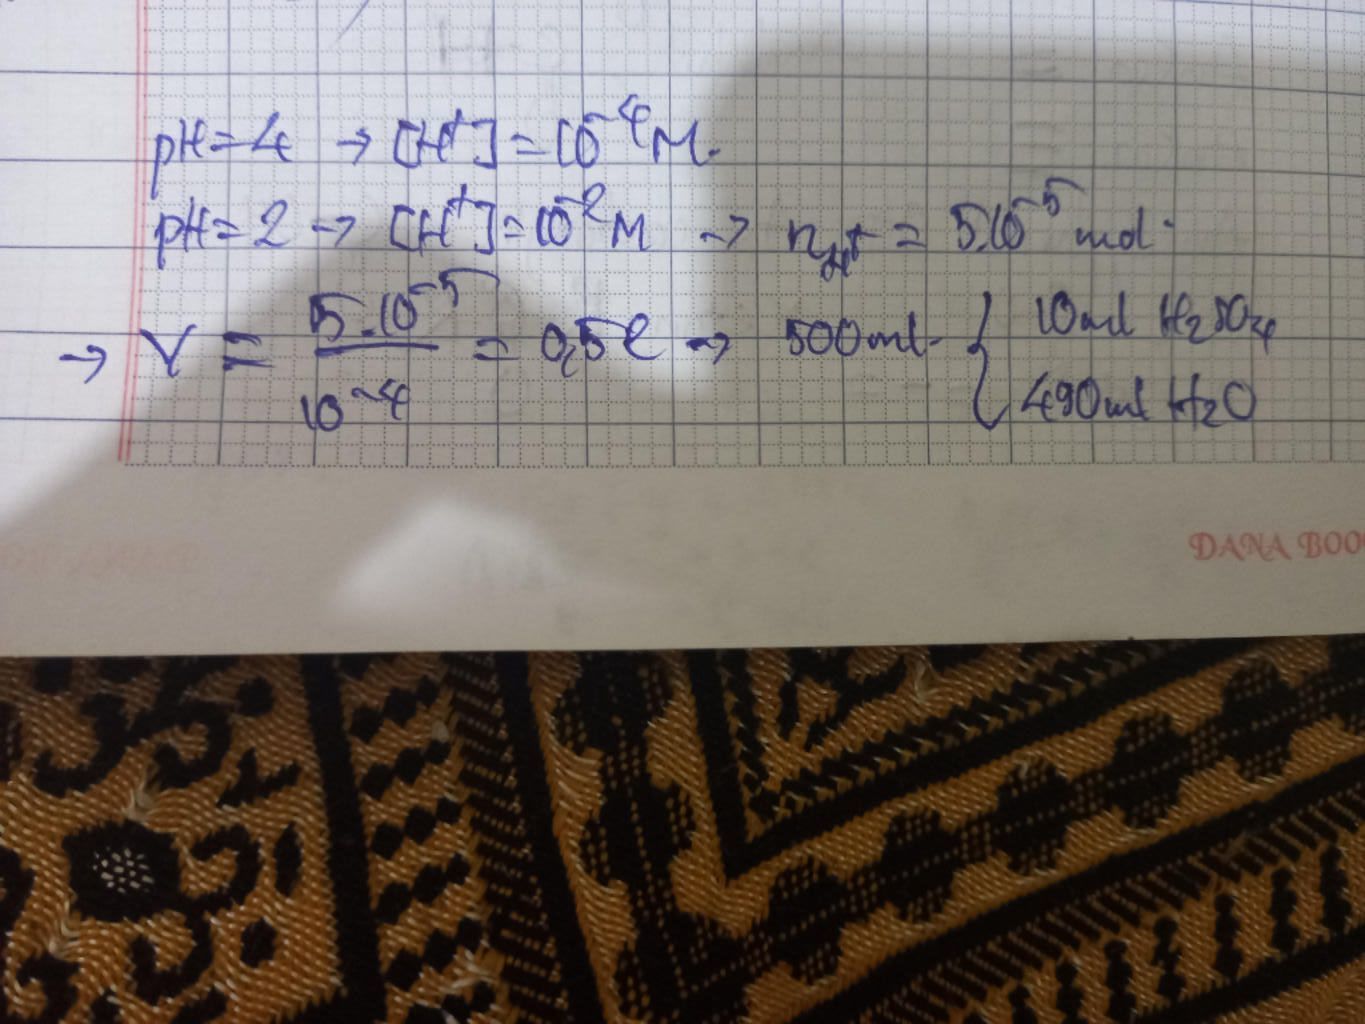 pH = 4 → [H+] = 10^-4 M.
pH = 2 → [H+] = 10^-2 M → nH+ = 5.10^-5 mol.
→ V = 5.10^-5 / 10^-4 = 0,5 l → 500ml. { 10ml H2SO4
490ml H2O
DANA BOO